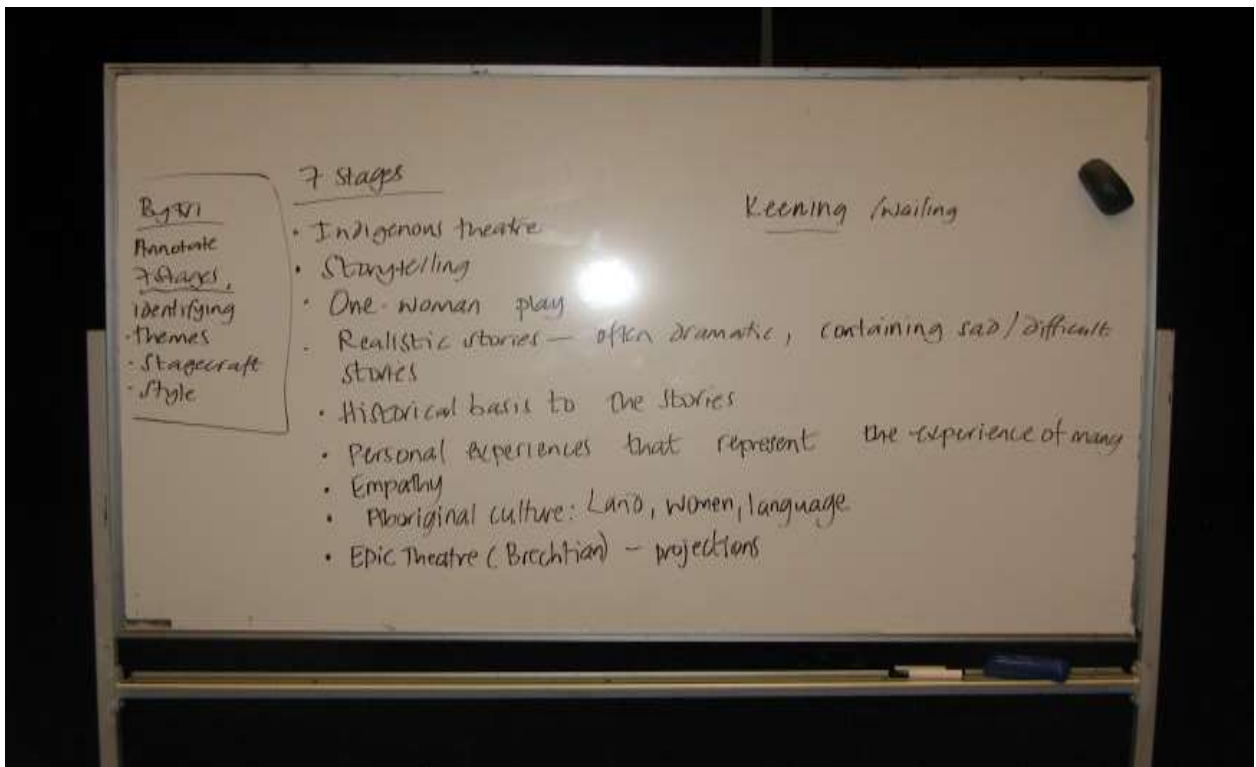 By Fri
Annotate
7 Stages,
identifying
·themes
·Stagecraft
·Style
7 Stages
· Indigenous theatre
· Storytelling
· One-woman play
· Realistic stories — often dramatic, containing sad/difficult
stories
· Historical basis to the stories
· Personal experiences that represent the experience of many
· Empathy
· Aboriginal culture: Land, women, language
· Epic Theatre (Brechtian) – projections
Keening /wailing